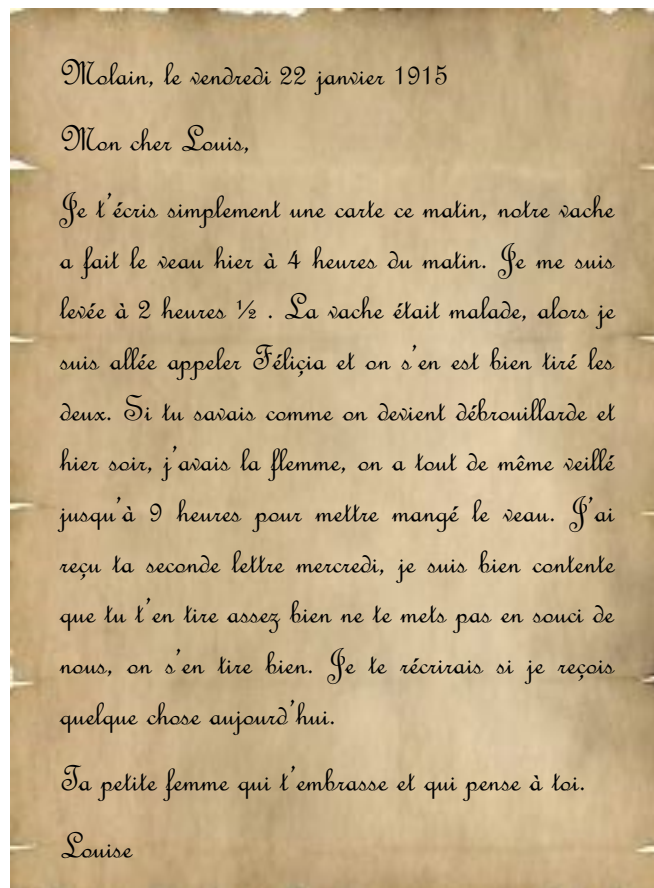 Molain, le vendredi 22 janvier 1915
Mon cher Louis,
Je t'écris simplement une carte ce matin, notre vache
a fait le veau hier à 4 heures du matin. Je me suis
levée à 2 heures ½ . La vache était malade, alors je
suis allée appeler Féliçia et on s'en est bien tiré les
deux. Si tu savais comme on devient débrouillarde et
hier soir, j'avais la flemme, on a tout de même veillé
jusqu'à 9 heures pour mettre mangé le veau. J'ai
reçu ta seconde lettre mercredi, je suis bien contente
que tu t'en tire assez bien ne te mets pas en souci de
nous, on s'en tire bien. Je te récrirais si je reçois
quelque chose aujourd'hui.
Ta petite femme qui t'embrasse et qui pense à toi.
Louise